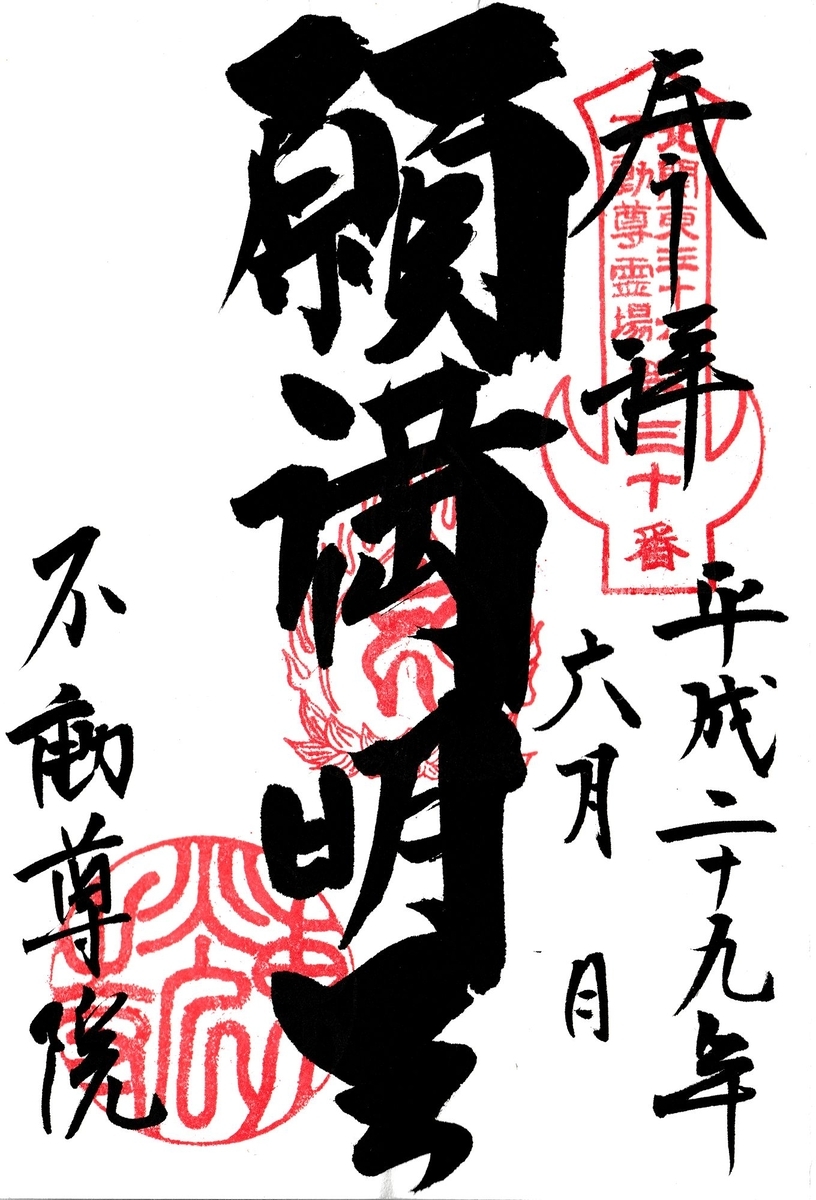 奉拝
北関東三十六
不動尊霊場
第三十番
平成二十九年
六月 日
願満明王
不動尊院